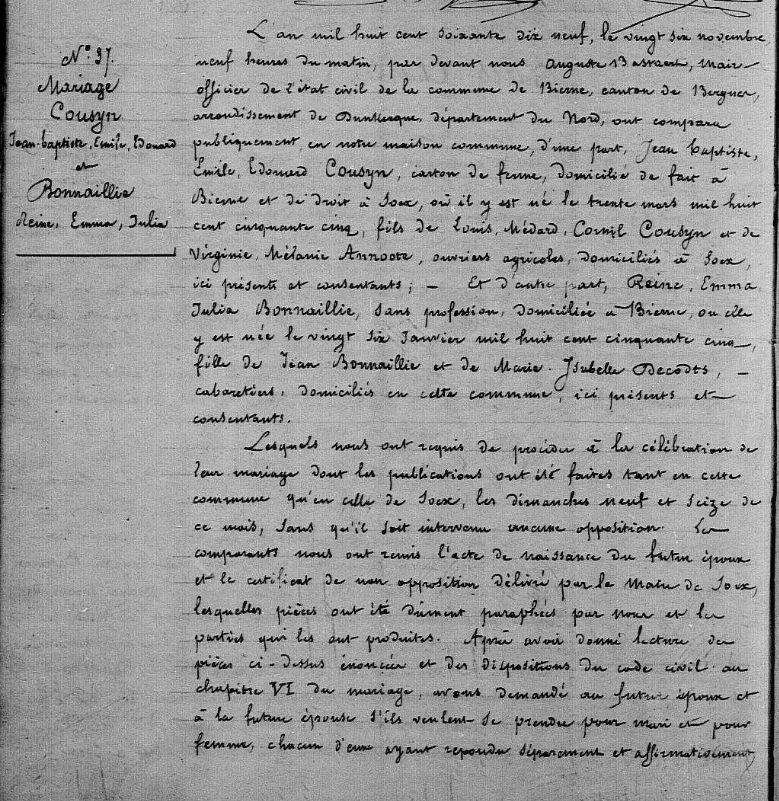 N° 37.
Mariage
Cousyn
Jean-baptiste, Emile, Edouard
et
Bonnaillie
Reine, Emma, Julia
L'an mil huit cent soixante dix neuf, le vingt six novembre
neuf heures du matin, par devant nous Auguste maire
officier de l'état civil de la commune de Bierne, canton de Bergues,
arrondissement de Dunkerque, département du Nord, ont comparu
publiquement en notre maison commune, d'une part, Jean baptiste,
Emile, Edouard Cousyn, de ferme, domicilié de fait à
Bierne et de droit à Socx, où il y est né le trente mars mil huit
cent cinquante cinq, fils de Louis, Médard, Cornil Cousyn et de
Virginie, Mélanie Annoote, ouvriers agricoles, domiciliés à Socx,
ici présents et consentants; — Et d'autre part, Reine, Emma
Julia Bonnaillie, sans profession, domiciliée à Bierne, ou elle
y est née le vingt six Janvier mil huit cent cinquante cinq,
fille de Jean Bonnaillie et de Marie. Isabelle Decodts, —
cabaretiers, domiciliés en cette commune, ici présents et
consentants.
Lesquels nous ont requis de procéder à la célébration de
leur mariage dont les publications ont été faites tant en cette
commune qu'en celle de Socx, les dimanches neuf et seize de
ce mois, sans qu'il soit intervenu aucune opposition. Les
comparants nous ont remis l'acte de naissance du futur époux
et le certificat de non opposition délivré par le Maire de Socx,
lesquelles pièces ont été dûment paraphées par nous et les
parties qui les ont produites. Après avoir donné lecture des
pièces ci-dessus énoncées et des dispositions du code civil au
chapitre VI du mariage, avons demandé au futur époux et
à la future épouse s'ils veulent se prendre pour mari et pour
femme, chacun d'eux ayant repondu séparément et affirmativement,